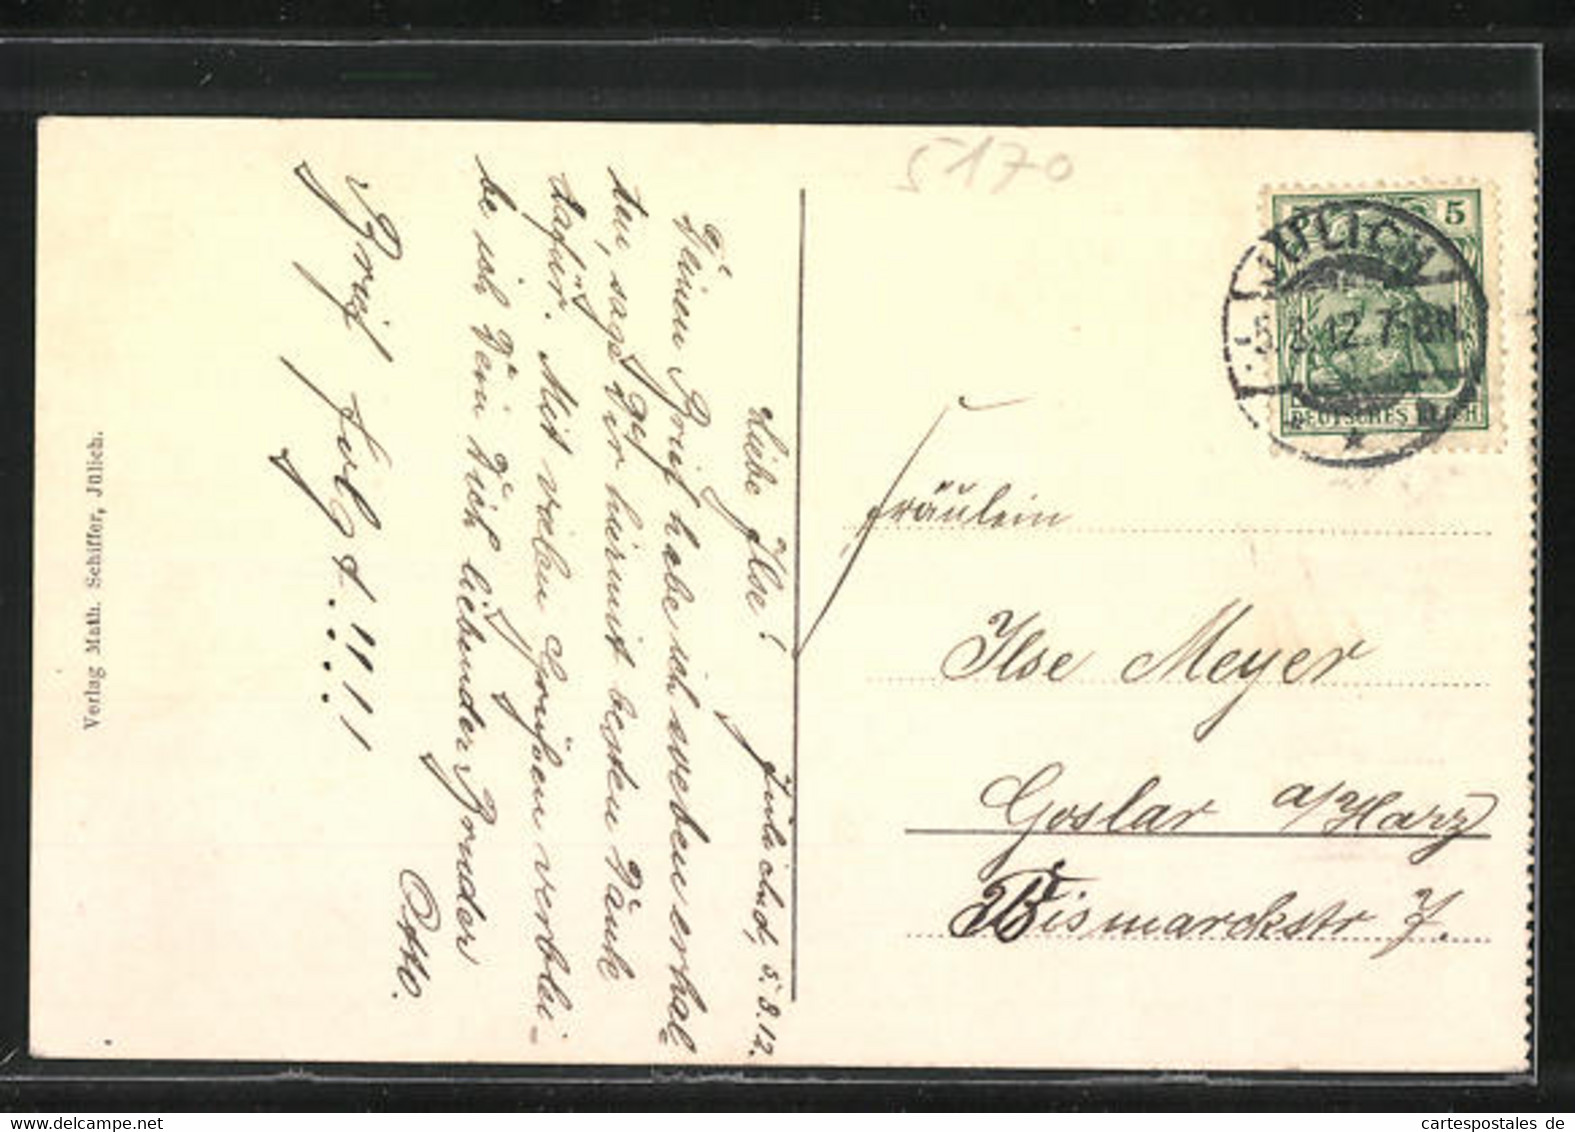 5170
5
JÜLICH
5.8.12.7-8N
DEUTSCHES REICH
Fräulein
Ilse Meyer
Goslar a/Harz
Bismarckstr 7.
Jülich, d, 5.8.12.
Liebe Ilse!
Deinen Brief habe ich soeben erhal-
ten, sage Dir hiermit besten Dank
dafür. Mit vielen Grüßen verblei-
be ich Dein Dich liebender Bruder
Otto.
Brief folgt.!!!!
Verlag Math. Schiffer, Jülich.
cartespostales de